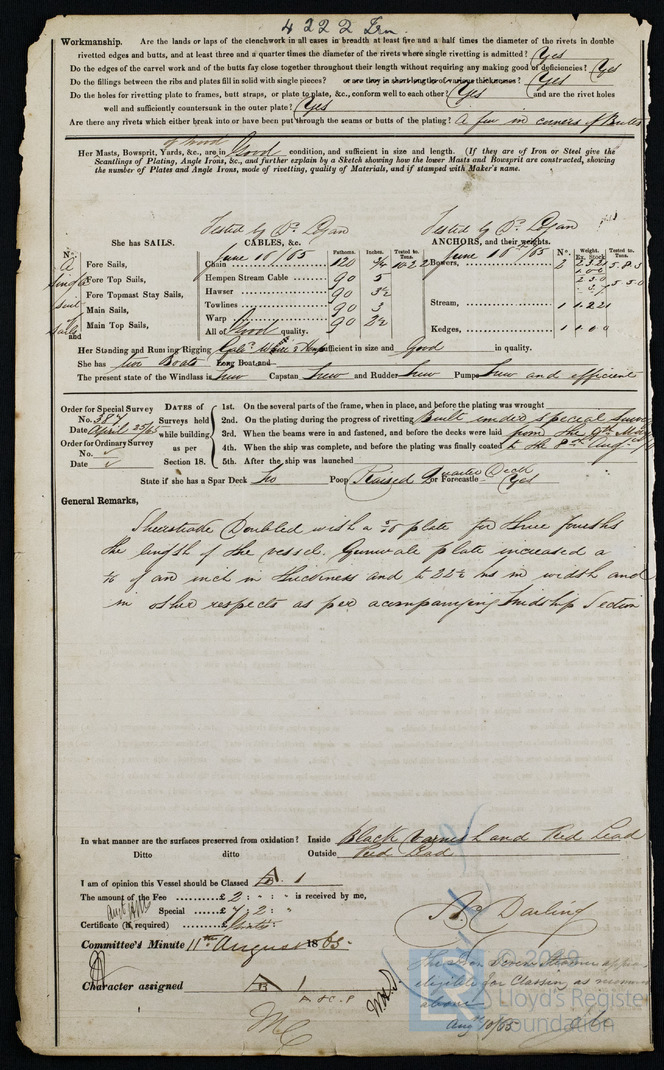 4222 Irn
Workmanship. Are the lands or laps of the clenchwork in all cases in breadth at least five and a half times the diameter of the rivets in double
rivetted edges and butts, and at least three and a quarter times the diameter of the rivets where single rivetting is admitted? Yes
Do the edges of the carvel work and of the butts fay close together throughout their length without requiring any making good of deficiencies? Yes
Do the fillings between the ribs and plates fill in solid with single pieces? or are they in short lengths of various thicknesses? Yes
Do the holes for rivetting plate to frames, butt straps, or plate to plate, &c., conform well to each other? Yes and are the rivet holes
well and sufficiently countersunk in the outer plate? Yes
Are there any rivets which either break into or have been put through the seams or butts of the plating? A few in corners of Butts
of wood
Her Masts, Bowsprit, Yards, &c., are in Good condition, and sufficient in size and length. (If they are of Iron or Steel give the
Scantlings of Plating, Angle Irons, &c., and further explain by a Sketch showing how the lower Masts and Bowsprit are constructed, showing
the number of Plates and Angle Irons, mode of rivetting, quality of Materials, and if stamped with Maker's name.
Tested by Tested by
She has SAILS. CABLES, &c. Fathoms. Inches. Tested to Tons. ANCHORS, and their weights. Nº. Weight. Ex. Stock Tested to Tons.
Nº. June 16/65 June 16th/65
A Fore Sails, Chain 120 Bowers, 2
single Fore Top Sails, Hempen Stream Cable 90 5
suit Fore Topmast Stay Sails, Hawser 90 3½
of Main Sails, Towlines 90 3 Stream, 1 1.2.21
Sails Main Top Sails, Warp 90 2½
and All of Good quality. Kedges, 1 1.0.0
Her Standing and Running Rigging Galv. Wire & Hemp sufficient in size and Good in quality.
She has two Boats Long Boat and
The present state of the Windlass is New Capstan New and Rudder New Pumps New and efficient
Order for Special Survey No. 387
Date April 25/65
Order for Ordinary Survey
No. ✓
Date ✓
DATES of Surveys held while building as per Section 18.
1st. On the several parts of the frame, when in place, and before the plating was wrought
2nd. On the plating during the progress of rivetting Built under special Survey
3rd. When the beams were in and fastened, and before the decks were laid from the 9th May
4th. When the ship was complete, and before the plating was finally coated to the 8th Aug
5th. After the ship was launched
State if she has a Spar Deck No Poop Raised Quarter Deck or Forecastle Yes
General Remarks,
Sheerstrake Doubled with a plate for three fourths
the length of the vessel. Gunwale plate increased a
1/16 of an inch in thickness and to 22½ ins in width and
in other respects as per acompanying Midship Section
In what manner are the surfaces preserved from oxidation? Inside Black Varnish and Red Lead
Ditto ditto Outside Red Lead
I am of opinion this Vessel should be Classed 1
The amount of the Fee £ 2 : " : " is received by me,
Special £ 7 : 2 : "
Certificate (if required) £
Darling
Committee's Minute 11th August 1865.
Character assigned 1
A & C.P
eligible for Classn, as recommd
above
Aug 10/65
© 2019
Lloyd's Register
Foundation